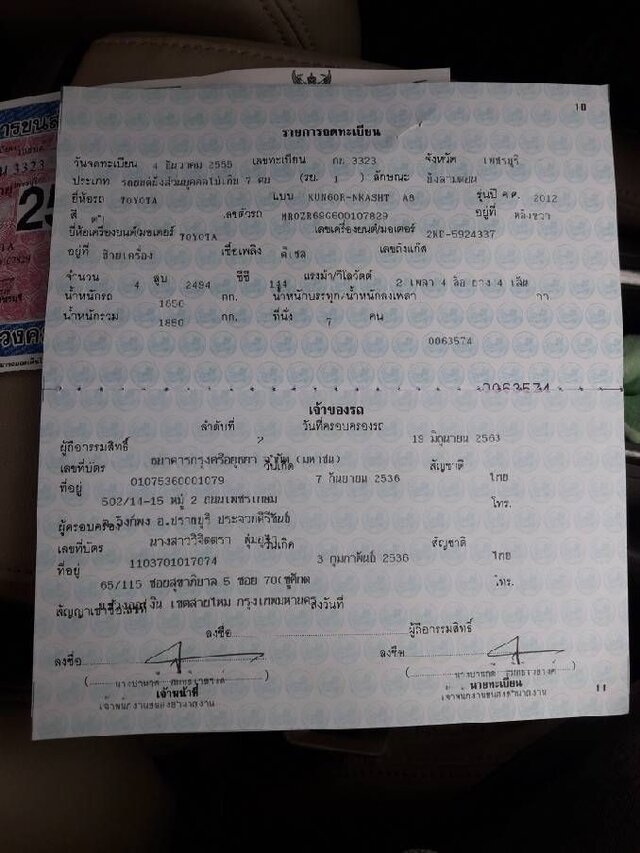 10
รายการจดทะเบียน
วันจดทะเบียน 4 ธันวาคม 2555 เลขทะเบียน กย 3323 จังหวัด เพชรบุรี
ประเภท รถยนต์นั่งส่วนบุคคลไม่เกิน 7 คน (รย. 1 ) ลักษณะ นั่งสามตอน
ยี่ห้อรถ TOYOTA แบบ KUN60R-NKASHT A8 รุ่นปี ค.ศ. 2012
สี เลขตัวรถ MR0ZR69G600107829 อยู่ที่
ยี่ห้อเครื่องยนต์/มอเตอร์ TOYOTA เลขเครื่องยนต์/มอเตอร์ 2KD-5924337
อยู่ที่ ซ้ายเครื่อง เชื้อเพลิง ดีเซล เลขถังแก๊ส
จำนวน 4 สูบ 2494 ซีซี 144 แรงม้า/กิโลวัตต์ 2 เพลา 4 ล้อ ยาง 4 เส้น
น้ำหนักรถ 1850 กก. น้ำหนักบรรทุก/น้ำหนักลงเพลา กก.
น้ำหนักรวม 1850 กก. ที่นั่ง 7 คน
0063574
เจ้าของรถ
ลำดับที่ 2 วันที่ครอบครองรถ 18 มิถุนายน 2563
ผู้ถือกรรมสิทธิ์ ธนาคารกรุงศรีอยุธยา จำกัด (มหาชน)
เลขที่บัตร 01075360001079 วันเกิด 7 กันยายน 2536 สัญชาติ ไทย
ที่อยู่ 502/14-15 หมู่ 2 ถนนเพชรเกษม โทร.
ต.วังก์พง อ.ปราณบุรี ประจวบคีรีขันธ์
ผู้ครอบครอง นางสาววิจิตตรา
เลขที่บัตร 1103701017074 วันเกิด 3 กุมภาพันธ์ 2536 สัญชาติ ไทย
ที่อยู่ 65/115 ซอยสุขาภิบาล 5 ซอย 70 โทร.
เขตสายไหม กรุงเทพมหานคร
สัญญาเช่าซื้อ ลงวันที่
ลงชื่อ ผู้ถือกรรมสิทธิ์
ลงชื่อ ลงชื่อ
เจ้าหน้าที่ นายทะเบียน
เจ้าพนักงานขนส่งชำนาญงาน เจ้าพนักงานขนส่งชำนาญงาน
11
3323
25